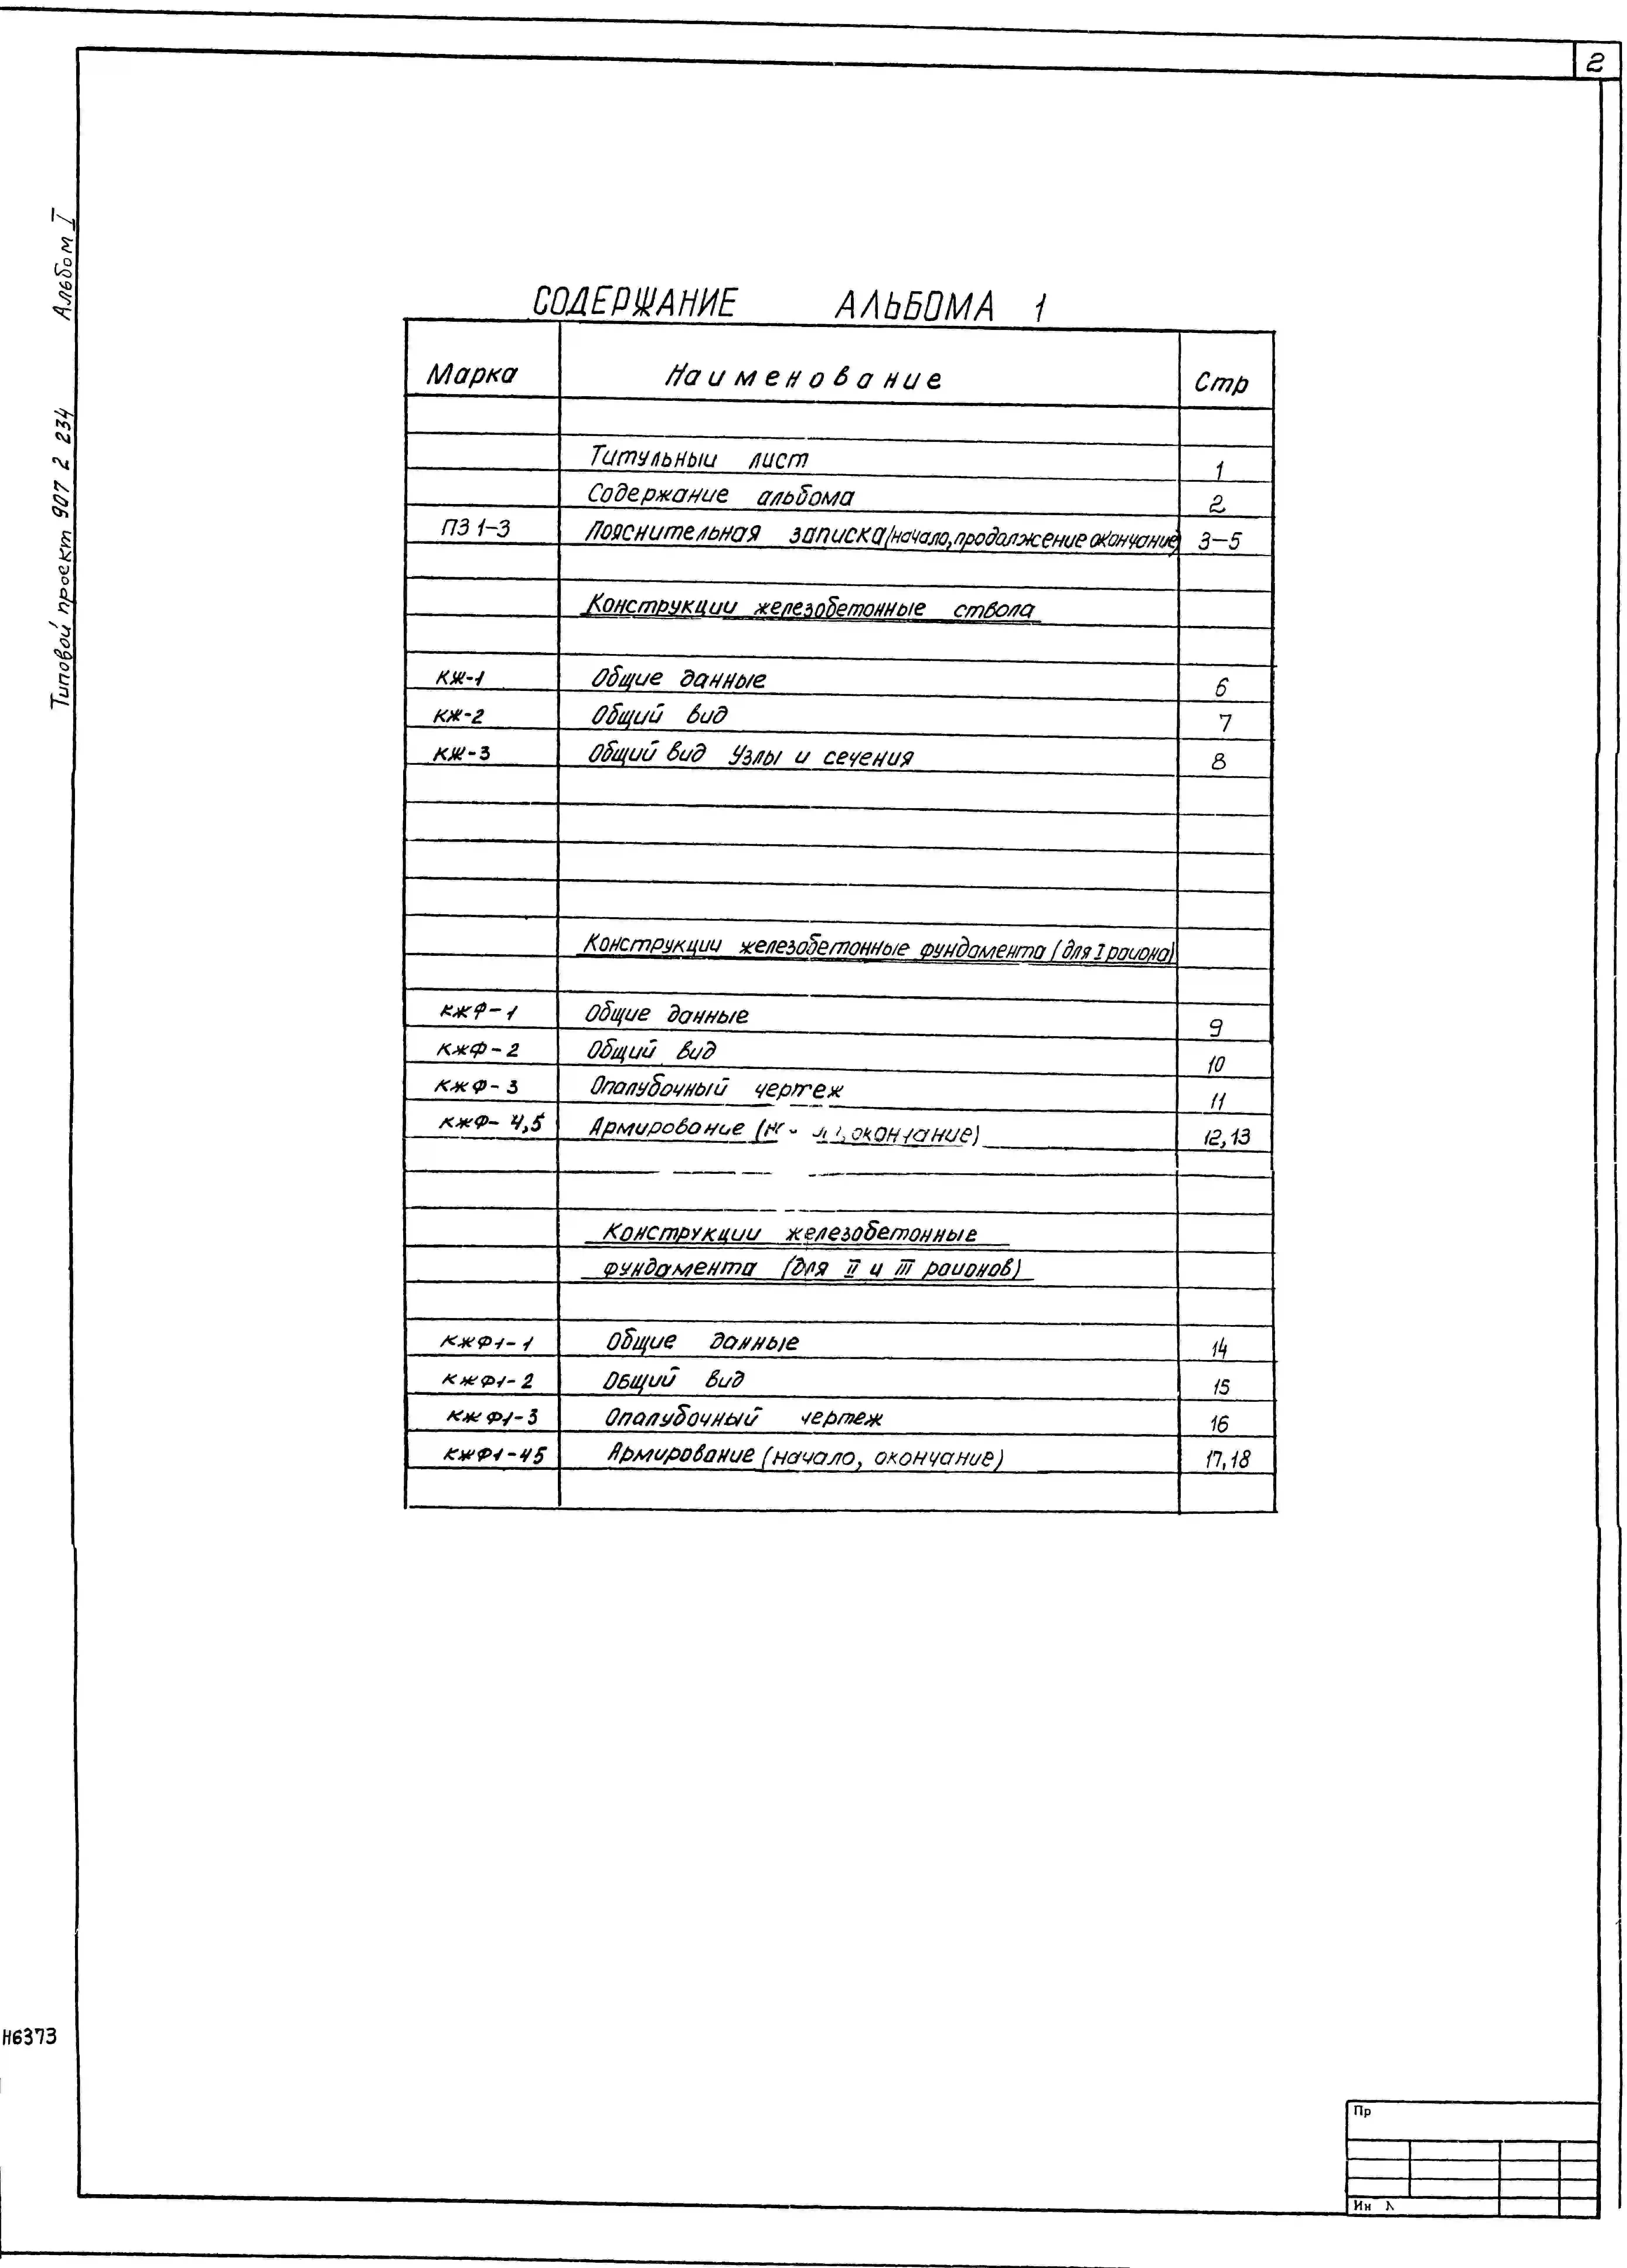 2
Типовой проект 907 2 234 Альбом I
СОДЕРЖАНИЕ АЛЬБОМА 1
Марка Наименование Стр
Титульный лист 1
Содержание альбома 2
ПЗ 1-3 Пояснительная записка (начало, продолжение окончание) 3-5
Конструкции железобетонные ствола
КЖ-1 Общие данные 6
КЖ-2 Общий вид 7
КЖ-3 Общий вид Узлы и сечения 8
Конструкции железобетонные фундамента (для I района)
КЖФ-1 Общие данные 9
КЖФ-2 Общий вид 10
КЖФ-3 Опалубочный чертеж 11
КЖФ-4,5 Армирование окончание) 12,13
Конструкции железобетонные
фундамента (для II и III районов)
КЖФ1-1 Общие данные 14
КЖФ1-2 Общий вид 15
КЖФ1-3 Опалубочный чертеж 16
КЖФ1-45 Армирование (начало, окончание) 17,18
Н6373
Пр
Ин